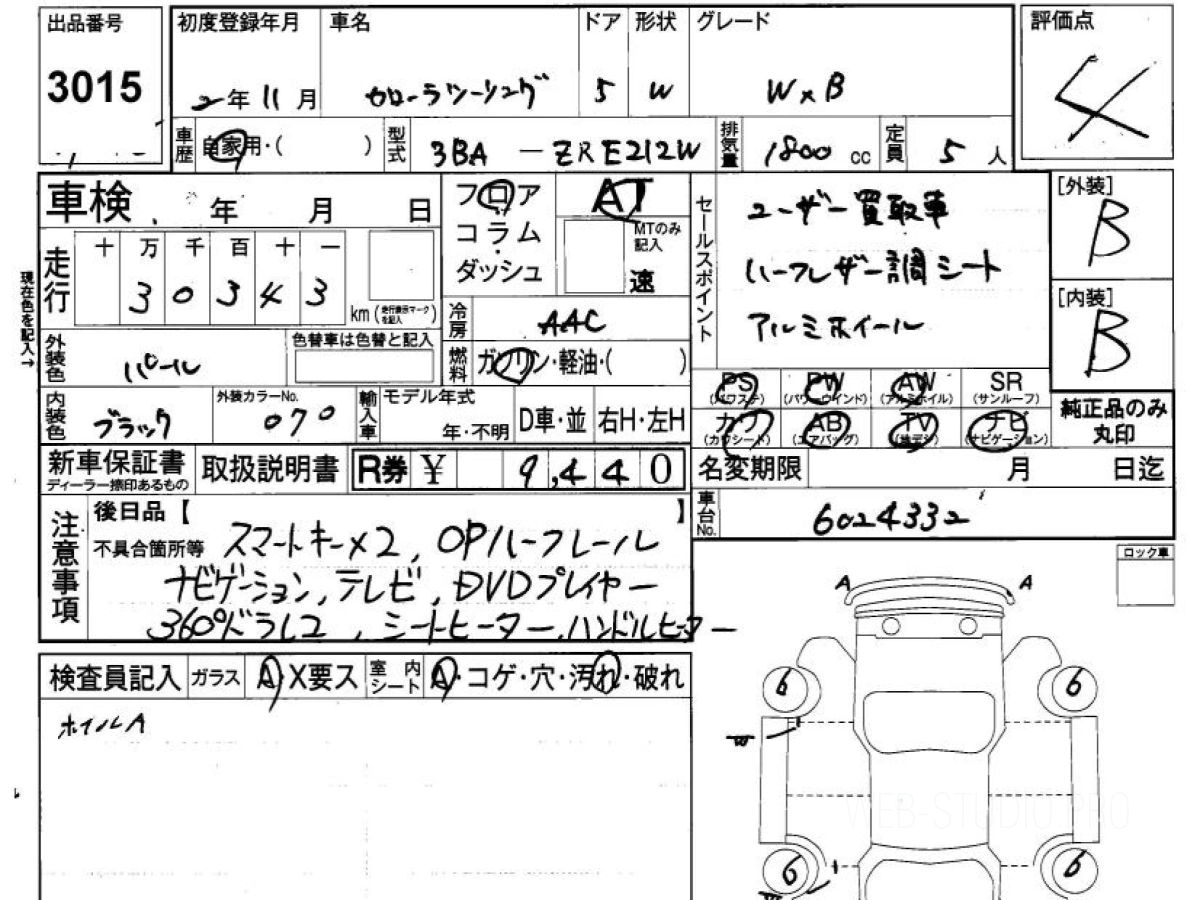 出品番号 初度登録年月 車名 ドア 形状 グレード 評価点
3015 2年 11月 カローラツーリング 5 W W×B 4
車歴 自家用・( ) 型式 3BA-ZRE212W 排気量 1800 cc 定員 5人
車検 年 月 日
フロア AT
コラム MTのみ記入
ダッシュ 速
走行 十 万 千 百 十 一
3 0 3 4 3 km (走行表示マークを記入)
現在色を記入→
冷房 AAC
外装色 パール 色替車は色替と記入
燃料 ガソリン・軽油・( )
内装色 ブラック 外装カラーNo. 070
輸入車 モデル年式 年・不明 D車・並 右H・左H
セールスポイント
ユーザー買取車
ハーフレザー調シート
アルミホイール
[外装]
B
[内装]
B
PS (パワステ) PW (パワーウインド) AW (アルミホイル) SR (サンルーフ)
カワ (カワシート) AB (エアバッグ) TV (地デジ) ナビ (ナビゲーション)
純正品のみ丸印
新車保証書 ディーラー捺印あるもの 取扱説明書 R券 ¥ 9,440
名変期限 月 日迄
車台No. 6024332
注意事項
後日品【 】
不具合箇所等 スマートキー×2, OPルーフレール
ナビゲーション, テレビ, DVDプレイヤー
360°ドラレコ, シートヒーター, ハンドルヒーター
ロック車
検査員記入 ガラス A・X要ス 室内シート A・コゲ・穴・汚れ・破れ
ホイルA
A A
6 6
6 6
WEB-STUDIO.PRO